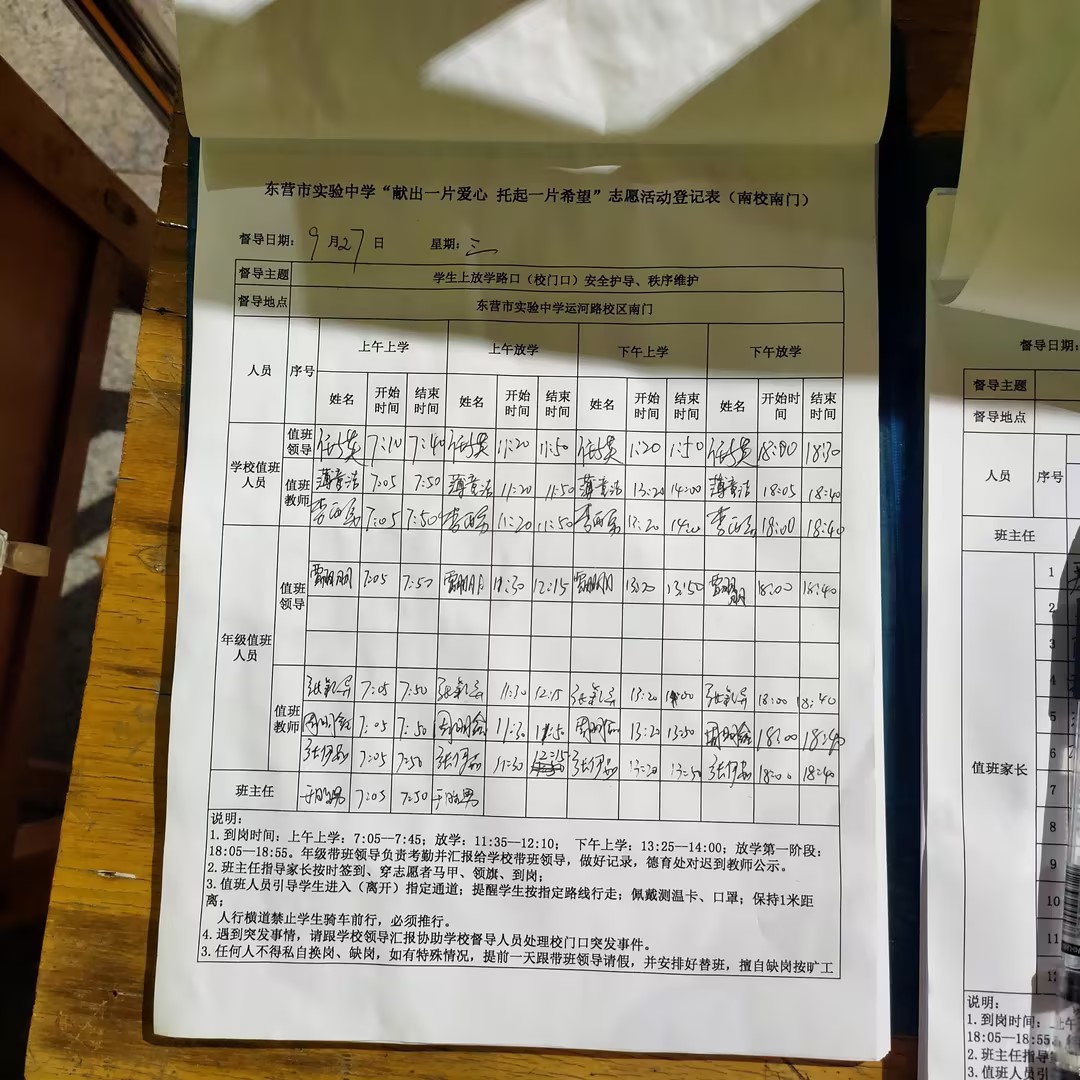 东营市实验中学“献出一片爱心 托起一片希望”志愿活动登记表（南校南门）
督导日期： 9 月 27 日 星期： 三
督导主题 学生上放学路口（校门口）安全护导、秩序维护
督导地点 东营市实验中学运河路校区南门
人员 序号 上午上学 上午放学 下午上学 下午放学
姓名 开始时间 结束时间 姓名 开始时间 结束时间 姓名 开始时间 结束时间 姓名 开始时间 结束时间
学校值班人员
值班领导 7:10 7:40 11:20 11:50 1:20 1:50 18:00 18:30
值班教师 薄 洁 7:05 7:50 薄 洁 11:20 11:50 薄 洁 13:20 14:00 薄 洁 18:05 18:40
李 7:05 7:50 李 11:20 11:50 李 13:20 李 18:00 18:40
年级值班人员
值班领导 贾明明 7:05 7:50 贾明明 11:30 12:15 贾明明 13:20 13:50 贾明明 18:00 18:40
值班教师 张 7:05 7:50 张 11:30 12:15 张 13:20 14:00 张 18:00 18:40
周明鑫 7:05 7:50 周明鑫 11:30 11:50 周明鑫 13:20 13:50 周明鑫 18:00 18:40
张伊 7:05 7:50 张伊 11:30 12:15 张伊 13:20 13:50 张伊 18:00 18:40
班主任 于 男 7:05 7:50 于 男
说明：
1. 到岗时间：上午上学：7:05—7:45；放学：11:35—12:10； 下午上学：13:25—14:00；放学第一阶段：
18:05—18:55。年级带班领导负责考勤并汇报给学校带班领导，做好记录，德育处对迟到教师公示。
2. 班主任指导家长按时签到、穿志愿者马甲、领旗、到岗；
3. 值班人员引导学生进入（离开）指定通道；提醒学生按指定路线行走；佩戴测温卡、口罩；保持1米距
离；
人行横道禁止学生骑车前行，必须推行。
4. 遇到突发事情，请跟学校领导汇报协助学校督导人员处理校门口突发事件。
3. 任何人不得私自换岗、缺岗，如有特殊情况，提前一天跟带班领导请假，并安排好替班，擅自缺岗按旷工
督导日期：
督导主题
督导地点
人员 序号
班主任
值班家长
1
2
3
4
5
6
7
8
9
10
11
说明：
1. 到岗时间：上午
18:05—18:55。
2. 班主任指导
3. 值班人员引